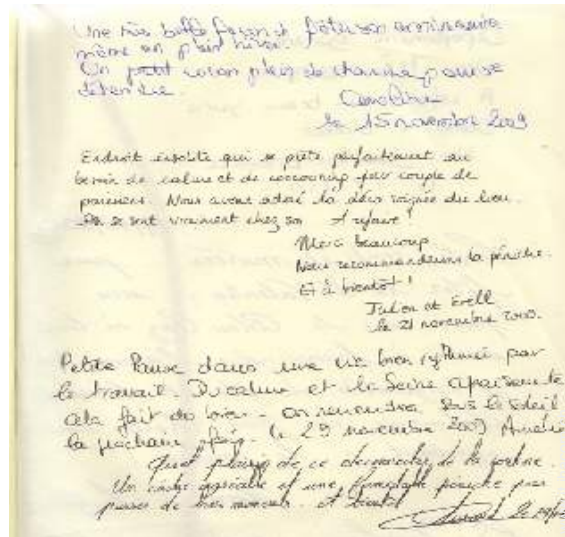 Une très belle façon de fêter son anniversaire
même en plein hiver.
Un petit cocon plein de charme pour se
détendre.
le 15 novembre 2009
Endroit insolite qui se prête parfaitement au
besoin de calme et de cocooning d'un couple de
parisiens. Nous avons adoré la déco soignée du lieu.
On se sent vraiment chez soi. A refaire !
Merci beaucoup
Nous recommanderons la péniche.
Et à bientôt !
Julien et Erell
le 21 novembre 2009.
Petite Pause dans une vie bien rythmée par
le travail. Du calme et la Seine apaisante
cela fait du bien. on reviendra sous le soleil
la prochaine fois. le 29 novembre 2009
Quel plaisir de ce de la
Un cadre agréable et une péniche pour
passer de bons moments. A bientôt